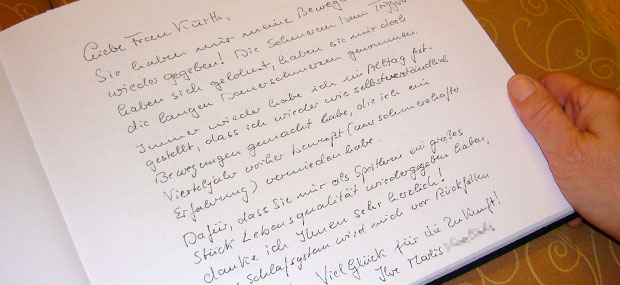 Liebe Frau Kürth,
Sie haben mir meine Beweg
wieder gegeben! Die Schmerzen beim Trigger
haben sich gelohnt, haben sie mir doch
die langen Dauerschmerzen genommen.
Immer wieder habe ich im Alltag fest-
gestellt, dass ich wieder wie selbstverständlich
Bewegungen gemacht habe, die ich ein
Vierteljahr vorher bewusst (aus schmerzhafter
Erfahrung) vermieden habe.
Dafür, dass Sie mir als Sportlerin ein großes
Stück Lebensqualität wiedergegeben haben,
danke ich Ihnen sehr herzlich!
Schlafsystem wird mich vor Rückfällen
Viel Glück für die Zukunft!
Ihre Marlis